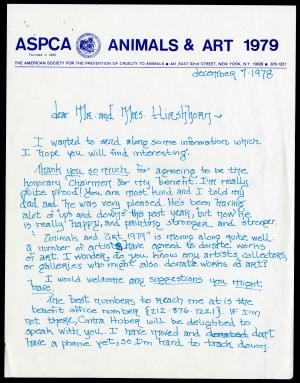 ASPCA ANIMALS & ART 1979
THE AMERICAN SOCIETY FOR THE PREVENTION OF CRUELTY TO ANIMALS • 441 EAST 92nd STREET, NEW YORK, N.Y. 10028 • 876-1221
december 7, 1978
dear Mr. and Mrs. Hirshhorn ~
I wanted to send along some information which
I hope you will find interesting.
Thank you so much for agreeing to be the
honorary Chairmen for my benefit. I'm really
quite proud! You are most kind and I told my
dad and he was very pleased. He's been having
alot of ups and downs this past year, but now he
is really happy, and painting stronger and stronger.
"Animals and Art 1979" is moving along quite well.
A number of artists have agreed to donate works
of art. I wonder, do you know any artists, collectors,
or galleries who might also donate works of art?
I would welcome any suggestions you might
have.
The best numbers to reach me at is the
benefit office number {212·876·1221}. If I'm
not there, Cintra Huber will be delighted to
speak with you. I have moved and don't
have a phone yet, so I'm hard to track down.